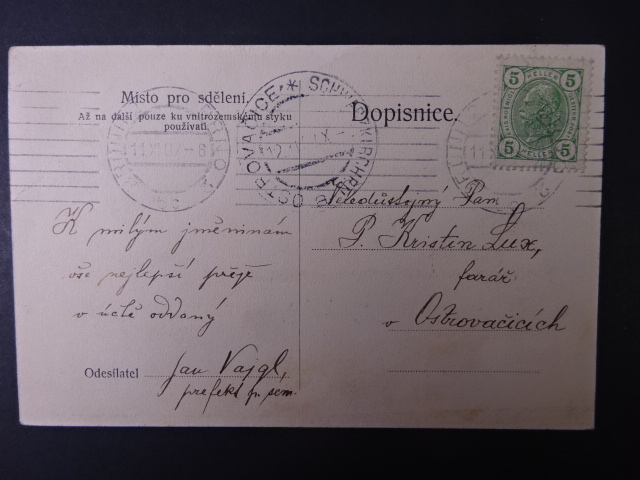 Místo pro sdělení.
Až na další pouze ku vnitrozemskému styku
používati.
Dopisnice.
5 HELLER 5
5 HELLER 5
OSTROVAČICE * SCHWARZKIRCHEN
K milým jmeninám
vše nejlepší přeje
v úctě oddaný
Odesílatel Jan Vajgl,
prefekt p. sem.
Veledůstojný Pan
P. Kristin Lux,
farář
v Ostrovačicích